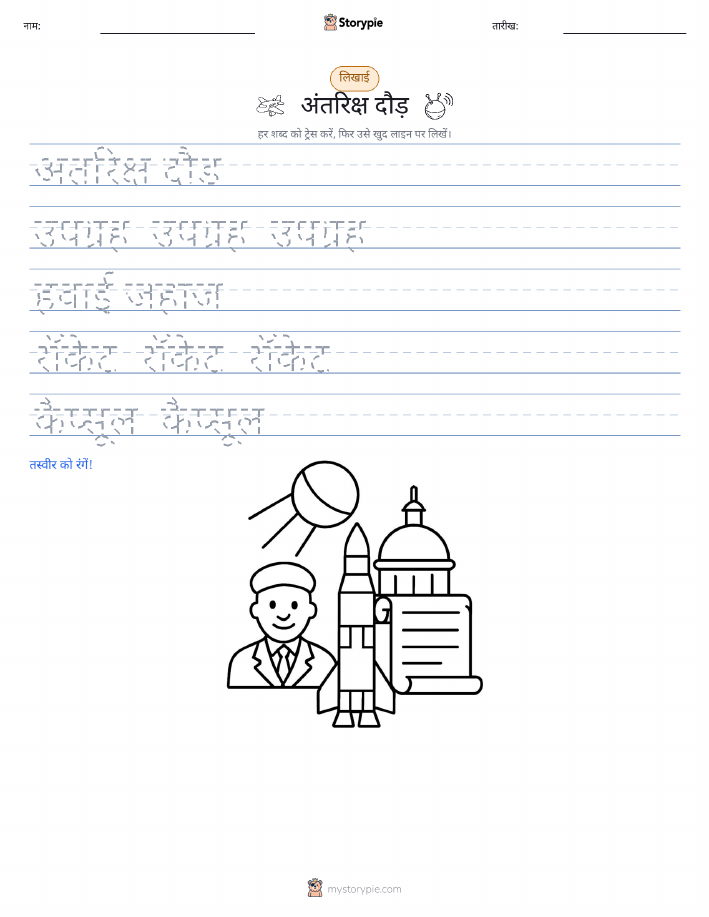 नाम:
Storypie
तारीख:
लिखाई
अंतरिक्ष दौड़
हर शब्द को ट्रेस करें, फिर उसे खुद लाइन पर लिखें।
अंतरिक्ष दौड़
उपग्रह उपग्रह उपग्रह
हवाई जहाज
रॉकेट रॉकेट रॉकेट
कैप्सूल कैप्सूल
तस्वीर को रंगें!
mystorypie.com